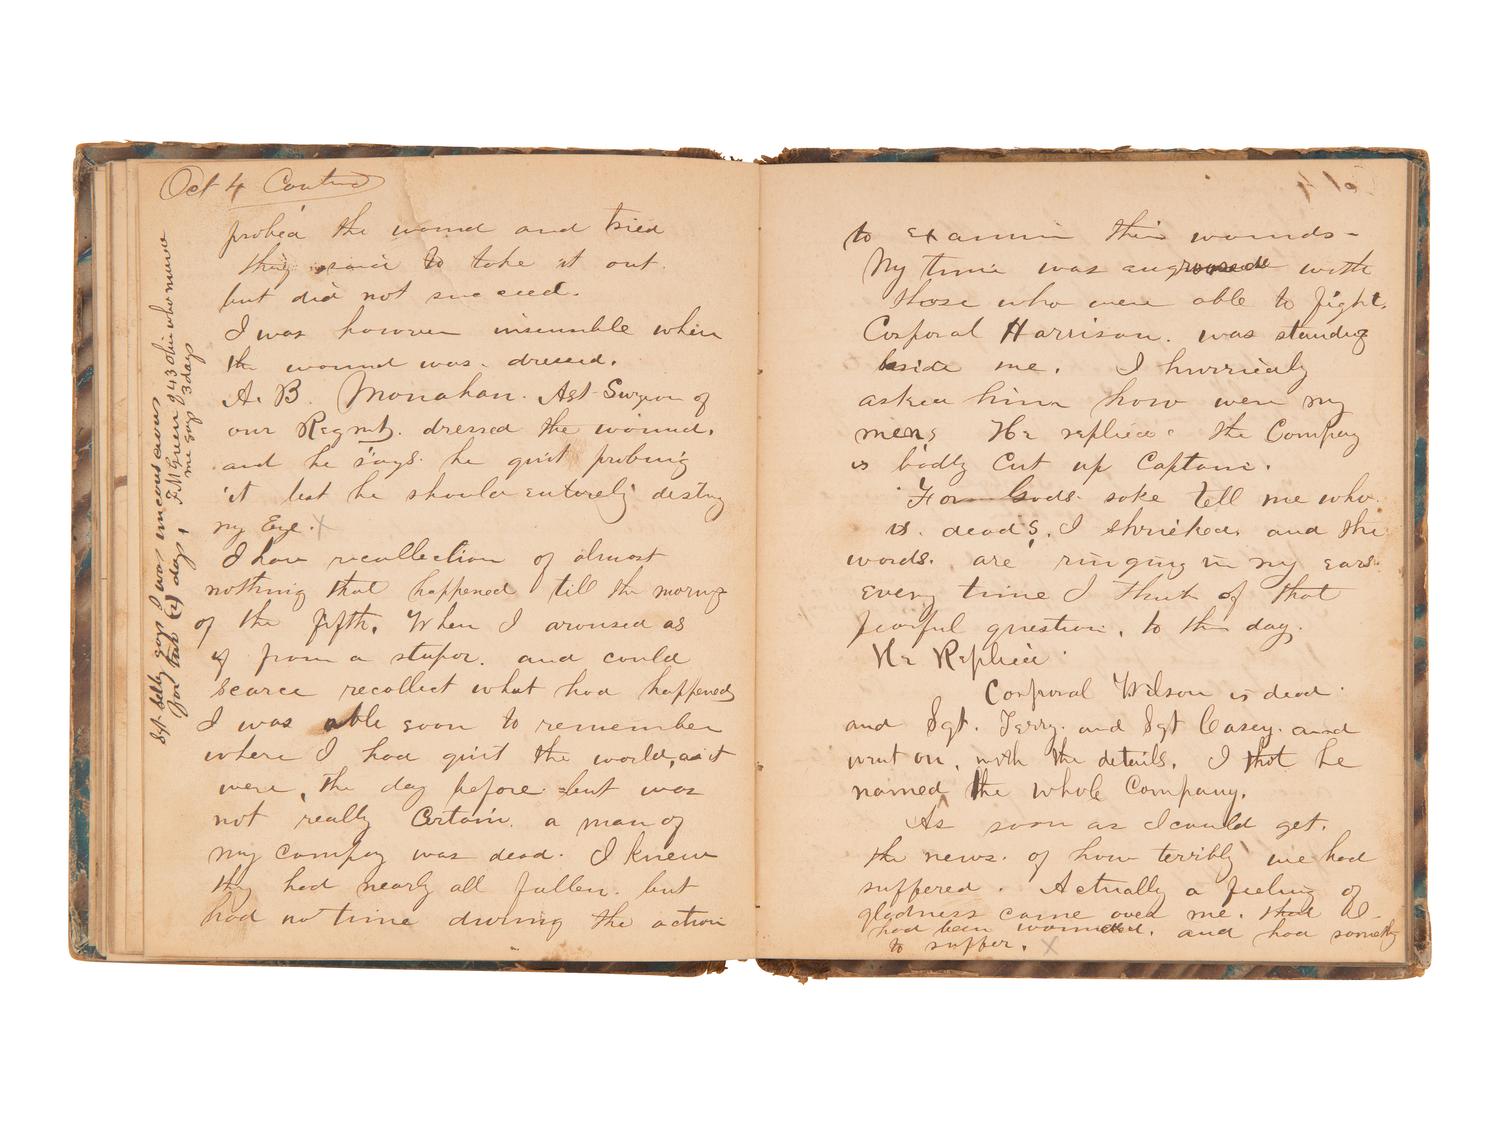 Oct 4 Contind
probed the wound and tried
they said to take it out.
but did not succeed.
I was however insensible when
the wound was dressed.
A. B. Monahan. Ast Surgeon of
our Regmt. dressed the wound.
and he says he quit probing
it lest he should entirely destroy
my Eye. x
I have recollection of almost
nothing that happened till the morng
of the fifth. When I aroused as
if from a stupor. and could
scarce recollect what had happened
I was able soon to remember
where I had quit the world, as it
were, the day before but was
not really Certain a man of
my Company was dead. I knew
they had nearly all fallen. but
had not time during the action
Sgt Selby says I was unconscious
for two (2) days!
F. M Green of 43 Ohio who
me says 3 days
to examin their wounds-
My time was with
those who were able to fight.
Corporal Harrison. was standing
beside me. I hurriedly
asked him how were my
mens He replied: the Company
is badly cut up Captain.
For Gods sake tell me who
is dead, I shrieked and the
words. are ringing in my ears
every time I think of that
fearful question, to this day.
He Replied
Corporal Wilson is dead.
and Sgt. Terry. and Sgt Casey. and
went on, with the details. I thot he
named the whole Company.
As soon as I could get.
the news. of how terribly we had
suffered. Actually a feeling of
gladness came over me. that I
had been wounded. and had something
to suffer. x